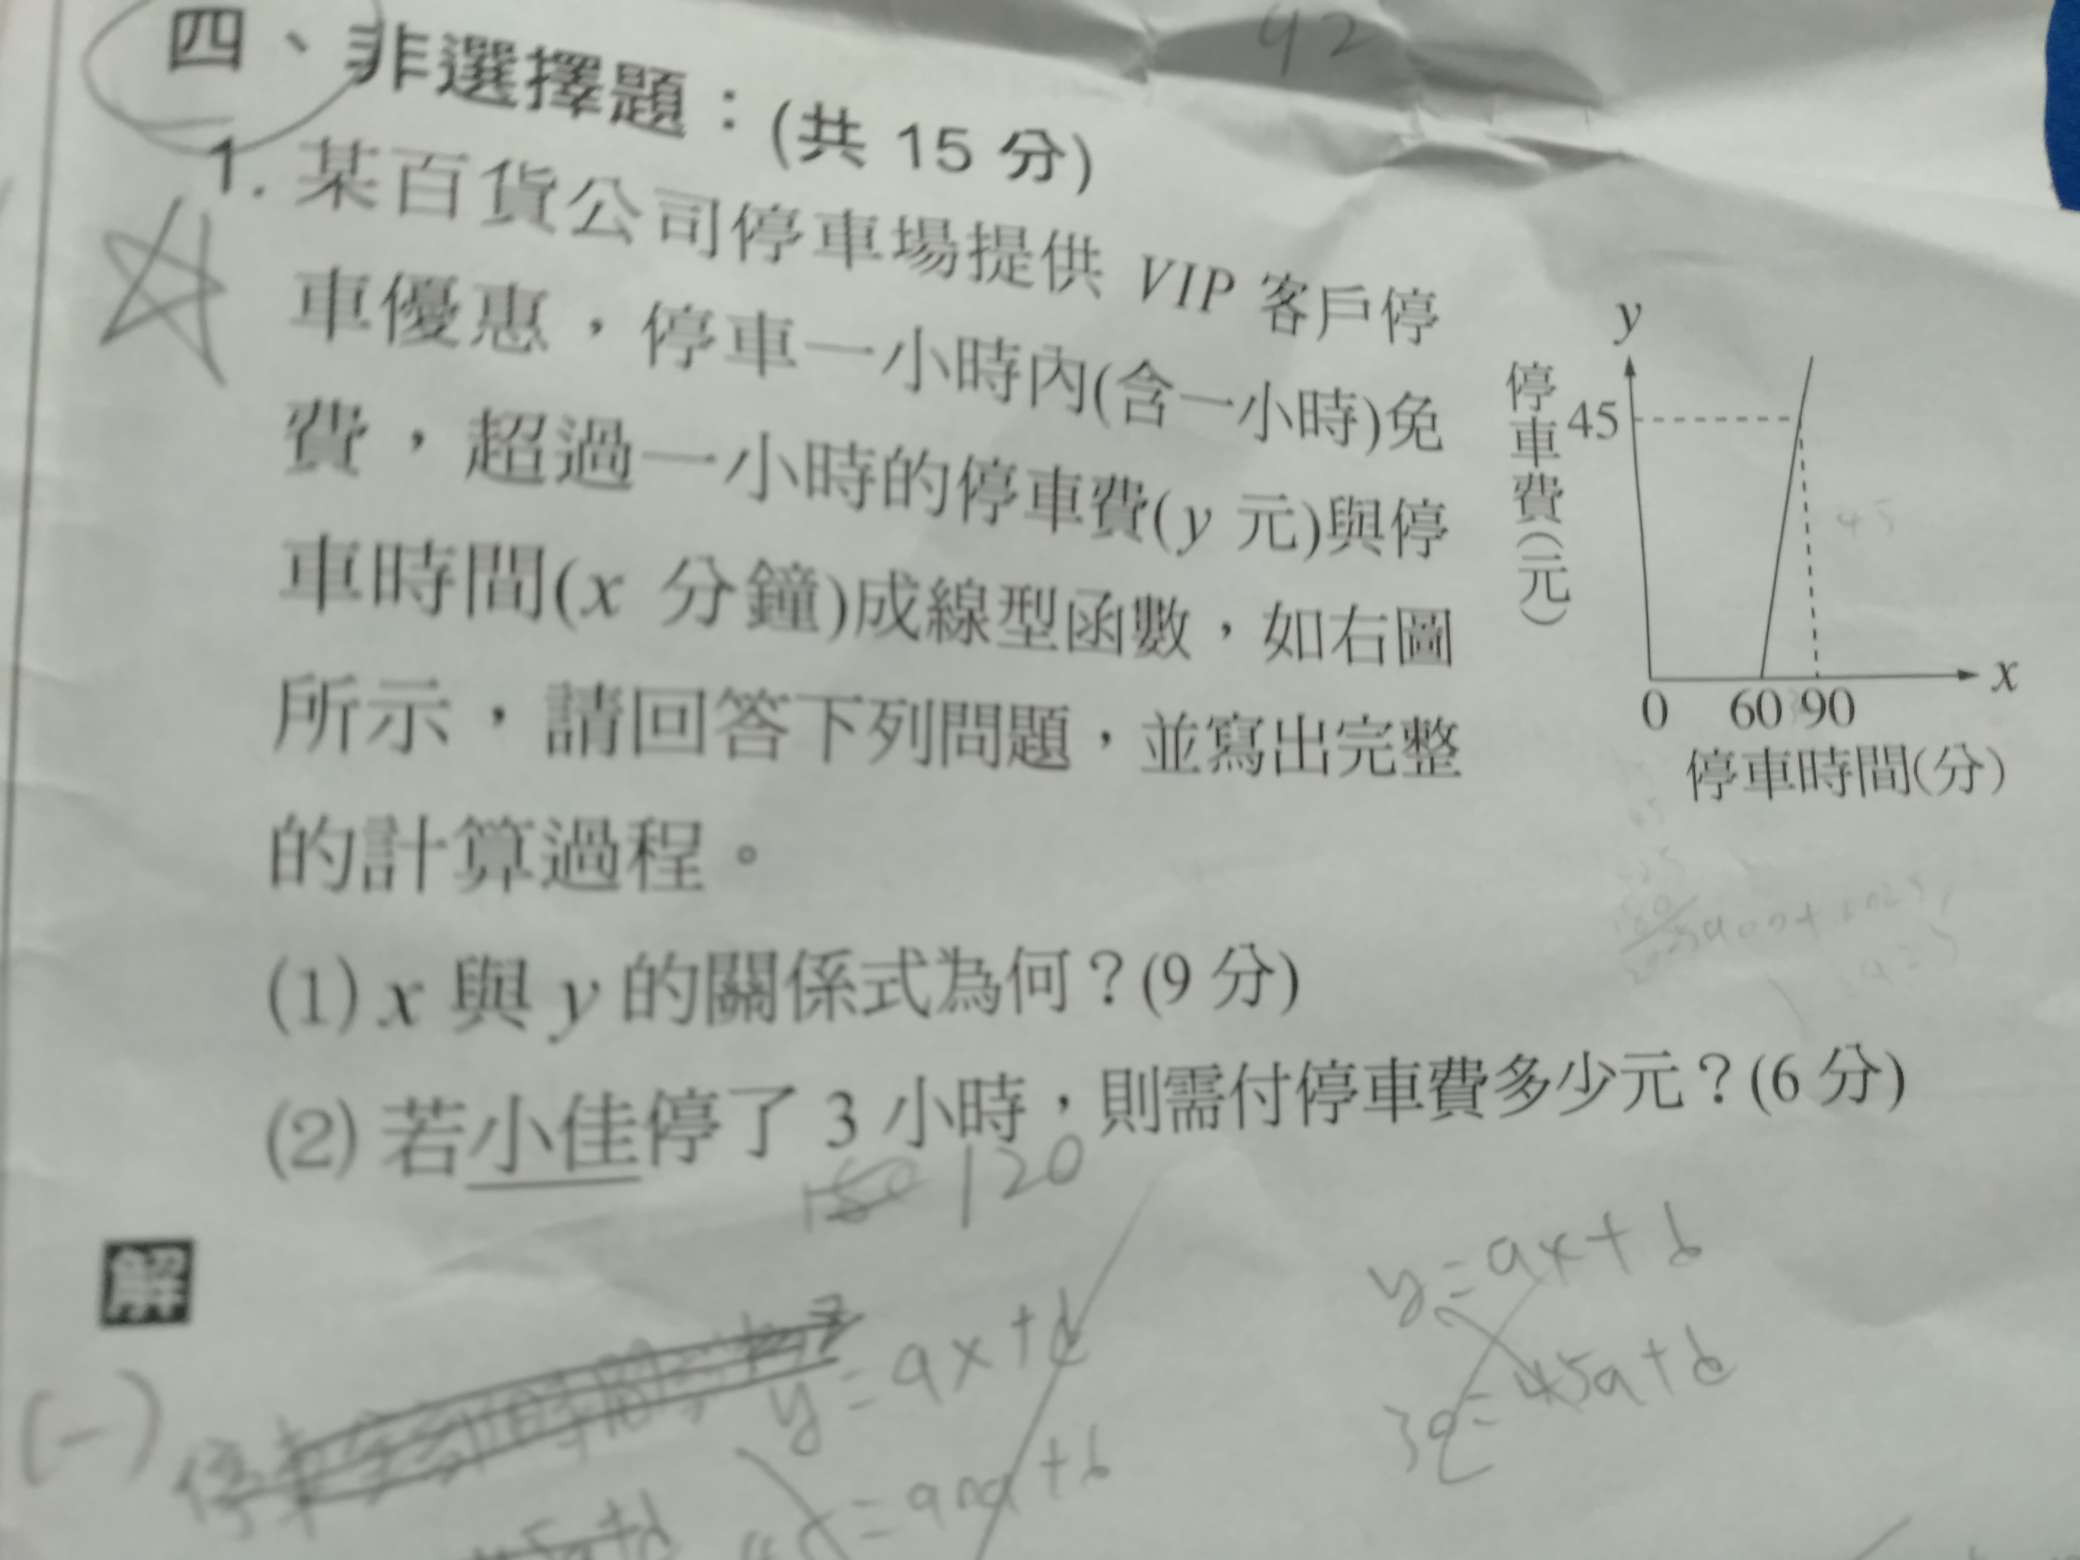 92
四、非選擇題：(共 15 分)
1. 某百貨公司停車場提供 VIP 客戶停
車優惠，停車一小時內(含一小時)免
費，超過一小時的停車費(y 元)與停
車時間(x 分鐘)成線型函數，如右圖
所示，請回答下列問題，並寫出完整
的計算過程。
y
停車費(元)
45
45
0 60 90 x
停車時間(分)
(1) x 與 y 的關係式為何？(9 分)
(2) 若小佳停了 3 小時，則需付停車費多少元？(6 分)
120
解
(一)
y=ax+b
=90a+b
y=ax+b
30=45a+b